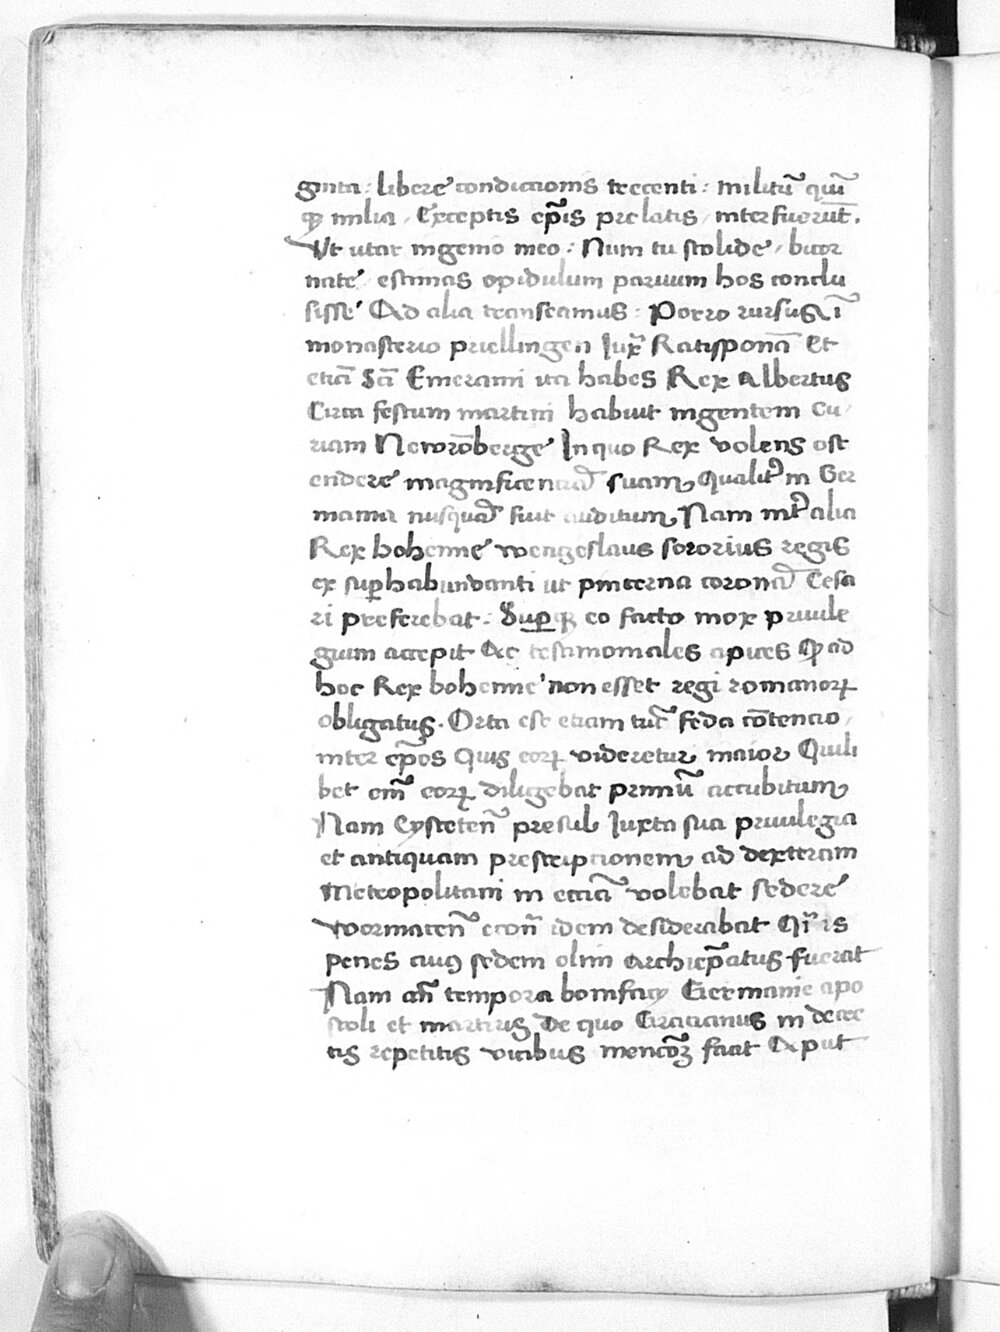 ginta : libere condicionis trecenti : militū quī
qꝫ milia / Exceptis ep̄is prelatis / interfuerūt.
Vt utar ingenio meo : Num tu stolide / bicor
nate / estimas opidulum paruum hos conclu
sisse / Ad alia transeamus : Porro rursus ī
monasterio priellingen Iux̄ Ratisponā Et
etiā Sc̄i Emerami ita habes Rex Albertus
Circa festum martini habuit ingentem cu /
riam Newrōberge In quo Rex volens ost
endere magnificenciā suam Qualit̄ in Ger
mania nusquā fuit auditum Nam int̄ alia
Rex bohemie wengeslaus sororius regis
ex suꝑhabundanti ut pincerna coronā Cesa
ri preferebat : Suꝑ qꝫ eo facto mox priuile
gium accepit Ac testimoniales apices Qꝫ ad
hoc Rex bohemie non esset regi romanoꝝ
obligatus . Orta est etiam tūc feda cōtencio /
inter ep̄os Quis eoꝝ videretur maior Quili
bet em̄ eoꝝ diligebat primū accubitum
Nam Eysteten̄ presul Iuxta sua priuilegia
et antiquam prescriptionem ad dexteram
Metropolitani in ecciā volebat sedere
Wormacen̄ econ̄ idem desiderabat Qī is
penes cuiꝰ sedem olim archiep̄atus fuerat
Nam an̄ tempora bonifacij Germanie apo
stoli et martiris De quo Gracianus in decre
tis repetitis vicibus mencōꝫ facit Caput